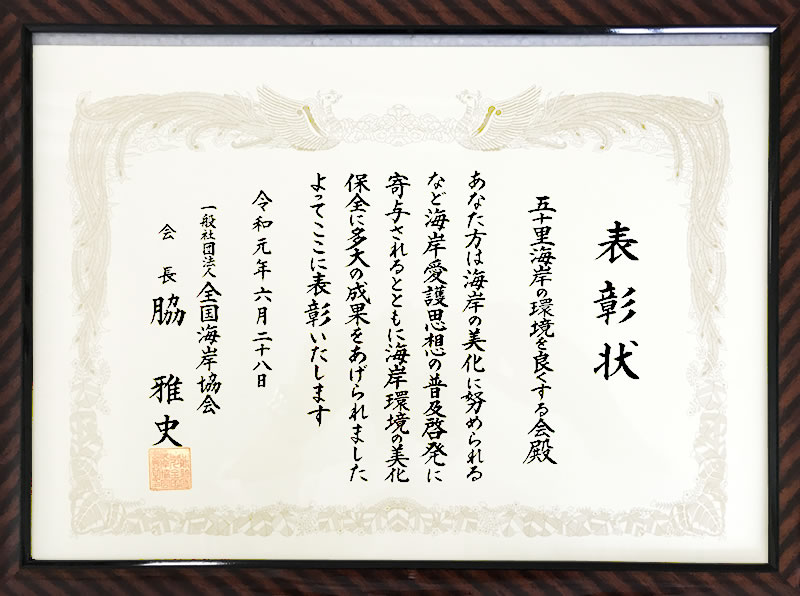 表彰状
五十里海岸の環境を良くする会殿
あなた方は海岸の美化に努められる
など海岸愛護思想の普及啓発に
寄与されるとともに海岸環境の美化
保全に多大の成果をあげられました
よってここに表彰いたします
令和元年六月二十八日
一般社団法人全国海岸協会
会長 脇 雅史